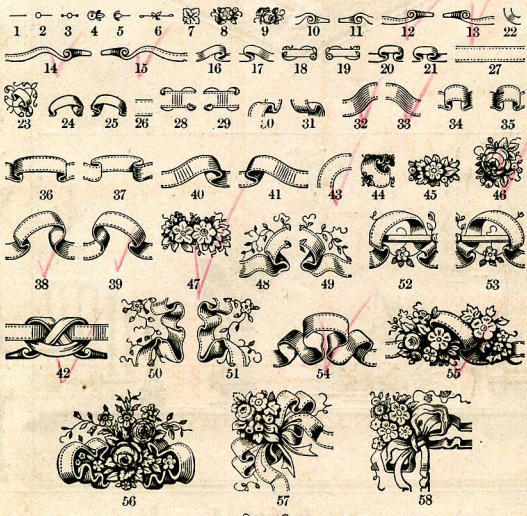 1 2 3 4 5 6 7 8 9 10 11 12 13 22
14 15 16 17 18 19 20 21 27
23 24 25 26 28 29 30 31 32 33 34 35
36 37 40 41 43 44 45 46
38 39 47 48 49 52 53
42 50 51 54 55
56 57 58